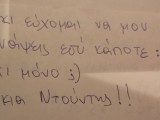 κι εύχομαι να μου
ανάψεις εσύ κάποτε :
τι μόνο ;)
κια Ντούντης!!